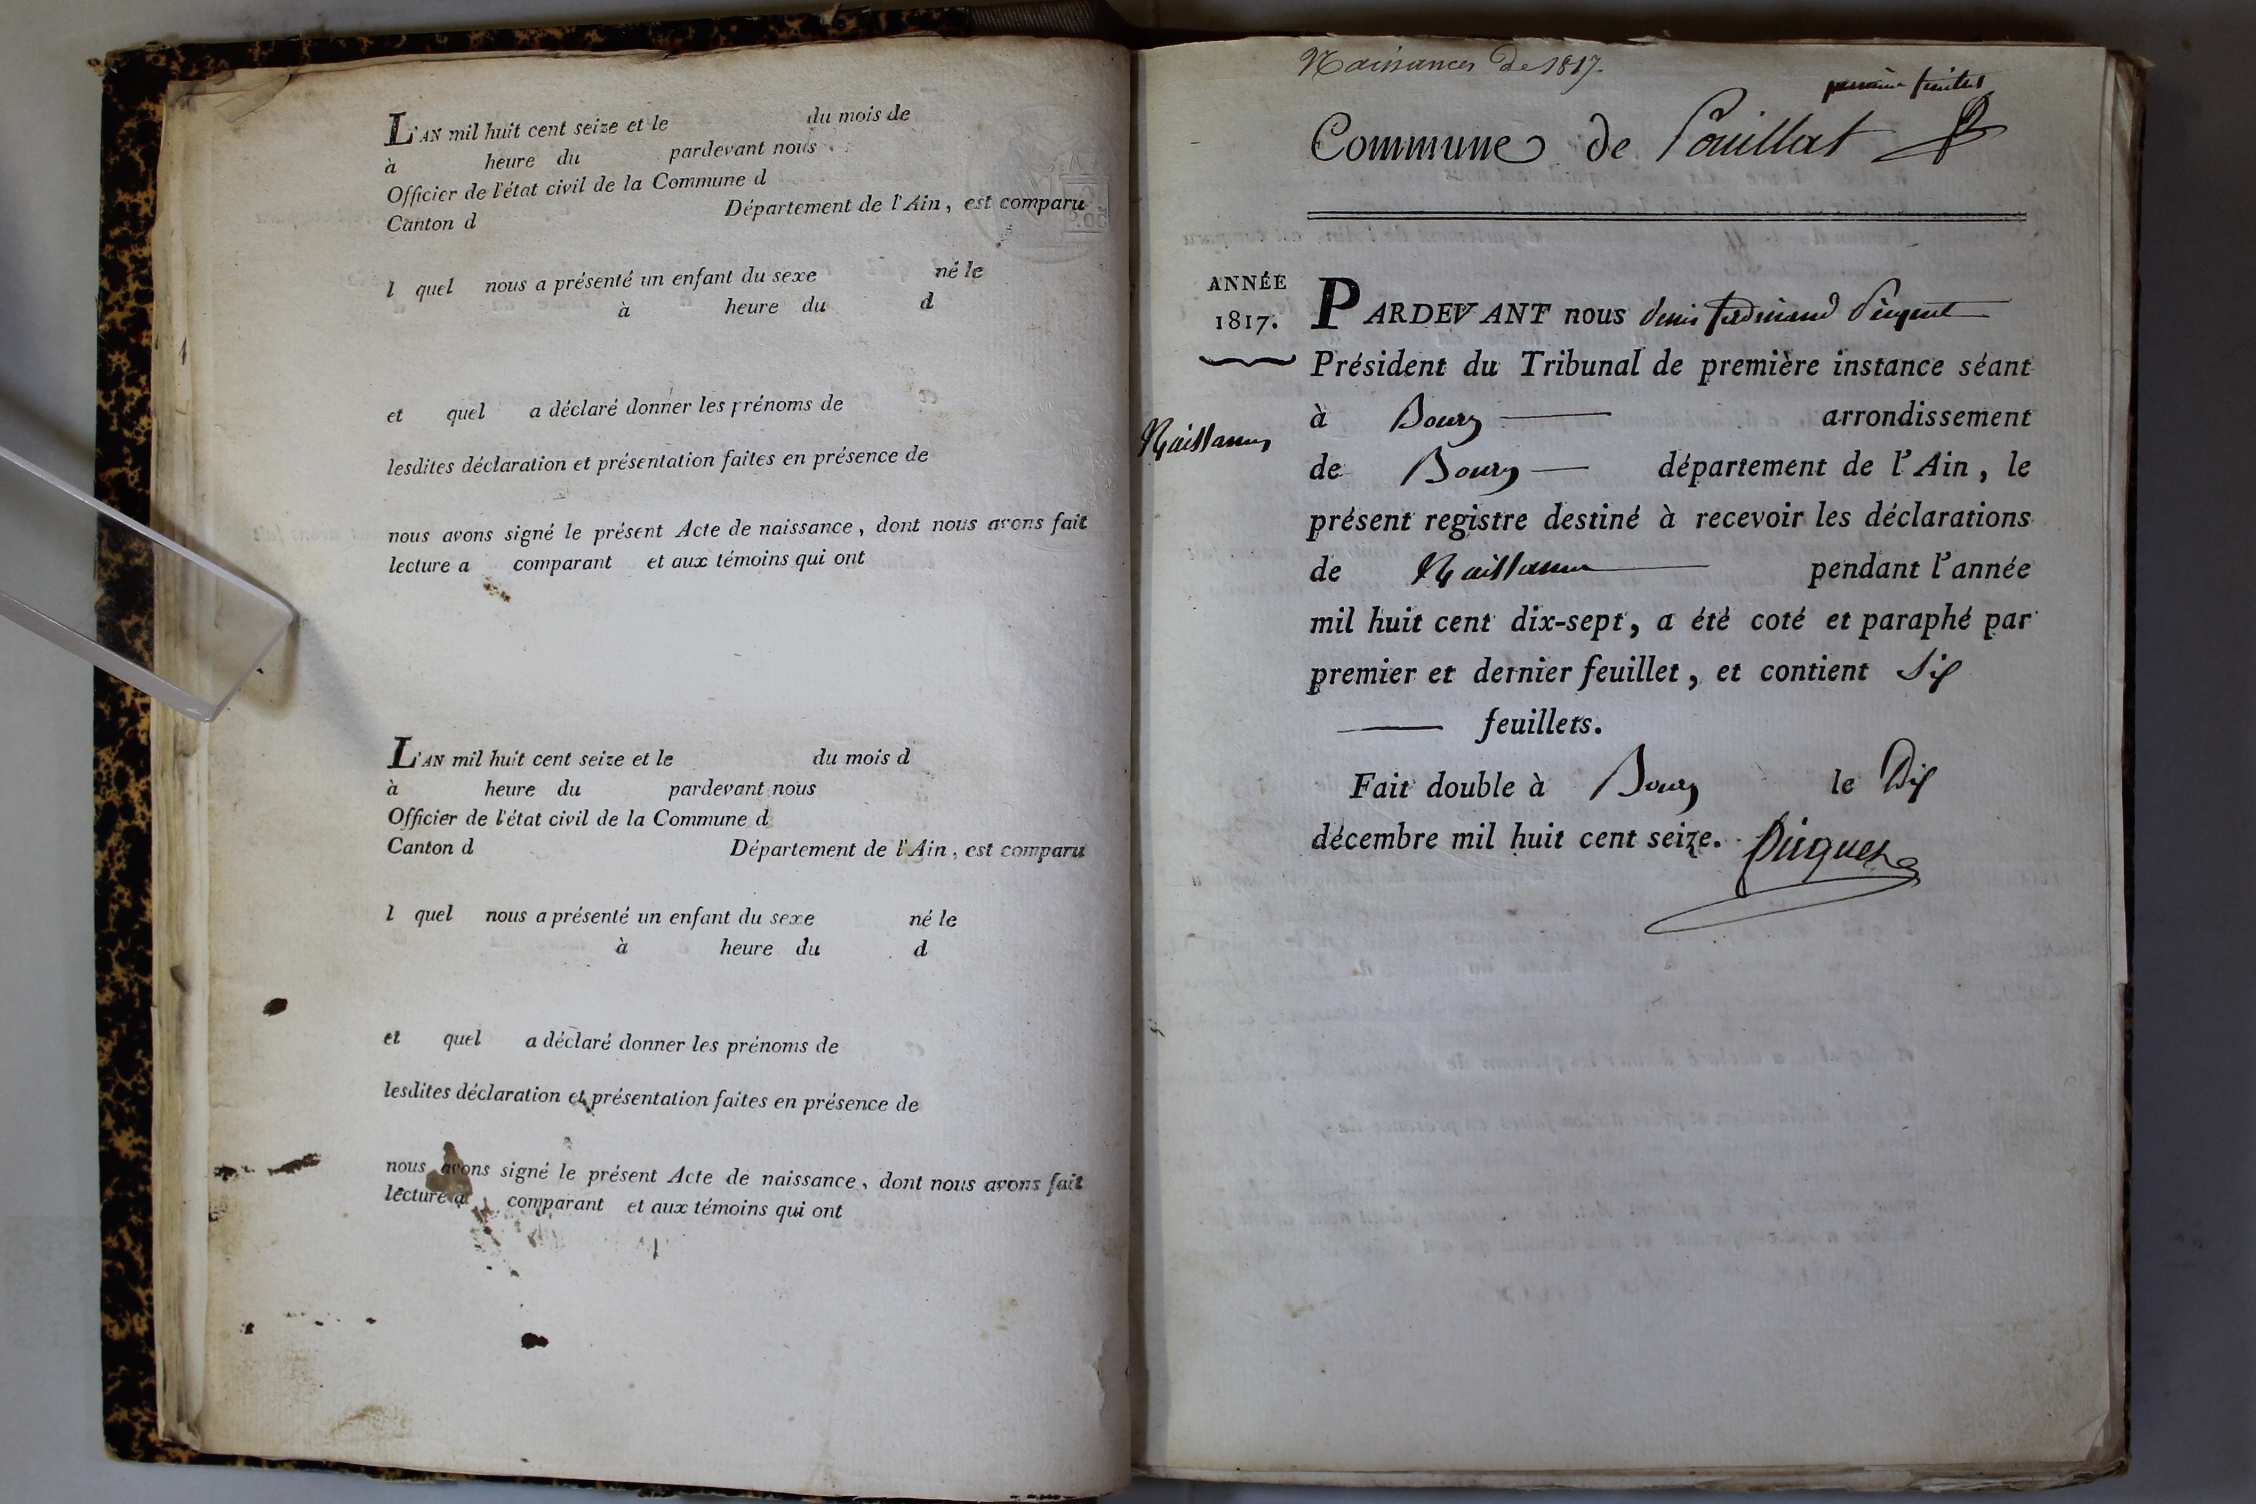 L'AN mil huit cent seize et le du mois de
à heure du pardevant nous
Officier de l'état civil de la Commune d
Canton d Département de l'Ain, est comparu
l quel nous a présenté un enfant du sexe né le
à heure du d
et quel a déclaré donner les prénoms de
lesdites déclaration et présentation faites en présence de
nous avons signé le présent Acte de naissance, dont nous avons fait
lecture a comparant et aux témoins qui ont
L'AN mil huit cent seize et le du mois d
à heure du pardevant nous
Officier de l'état civil de la Commune d
Canton d Département de l'Ain, est comparu
l quel nous a présenté un enfant du sexe né le
à heure du d
et quel a déclaré donner les prénoms de
lesdites déclaration et présentation faites en présence de
nous avons signé le présent Acte de naissance, dont nous avons fait
lecture a comparant et aux témoins qui ont
Naissances de 1817.
premier feuillet
Commune de Pouillat
ANNÉE
1817.
Naissances
PARDEVANT nous denis ferdinand
Président du Tribunal de première instance séant
à Bourg arrondissement
de Bourg département de l'Ain, le
présent registre destiné à recevoir les déclarations
de Naissances pendant l'année
mil huit cent dix-sept, a été coté et paraphé par
premier et dernier feuillet, et contient Six
feuillets.
Fait double à Bourg le Dix
décembre mil huit cent seize.